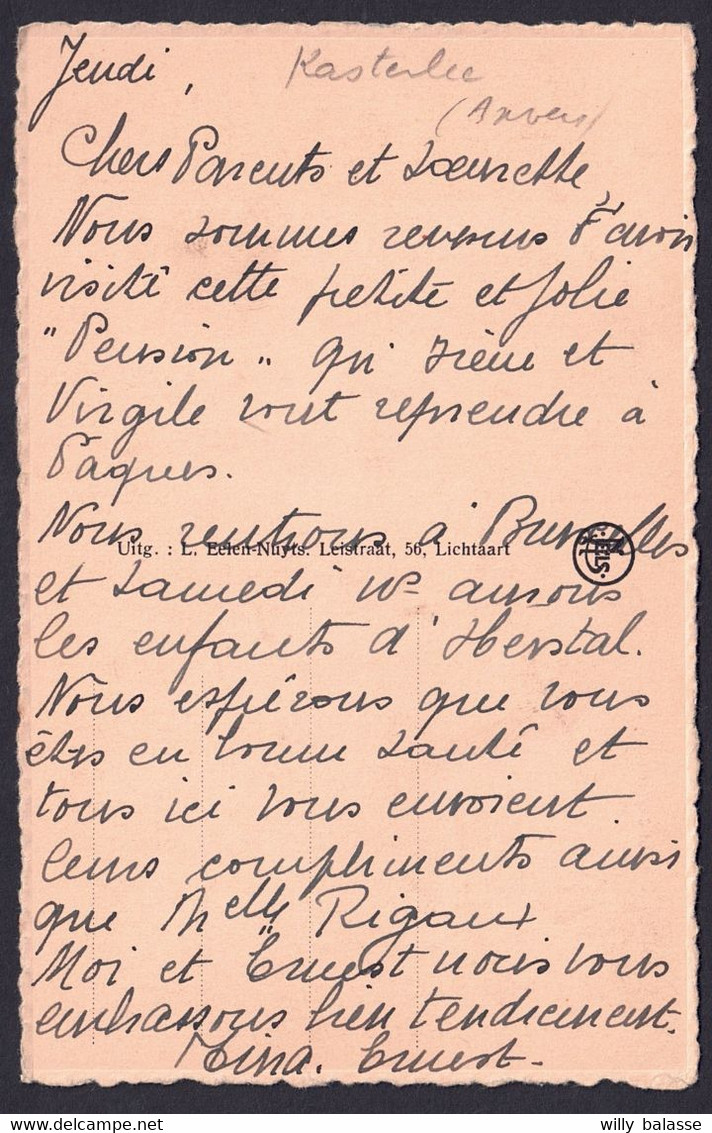 Jeudi, Kasterlee
(Anvers)
Chers Parents et Soeurette,
Nous sommes revenus d'avoir
visité cette petite et jolie
"Pension" qu'Irène et
Virgile vont reprendre à
Pâques.
Nous rentrons à Bruxelles
Uitg. : L. Eelen-Nuyts. Leistraat, 56, Lichtaart
NELS
et Samedi ns aurons
les enfants d'Herstal.
Nous espérons que vous
êtes en bonne santé et
tous ici vous envoient
leurs compliments ainsi
que Melle Rigaux
Moi et Ernest nous vous
embrassons bien tendrement.
Ernest.
willy balasse